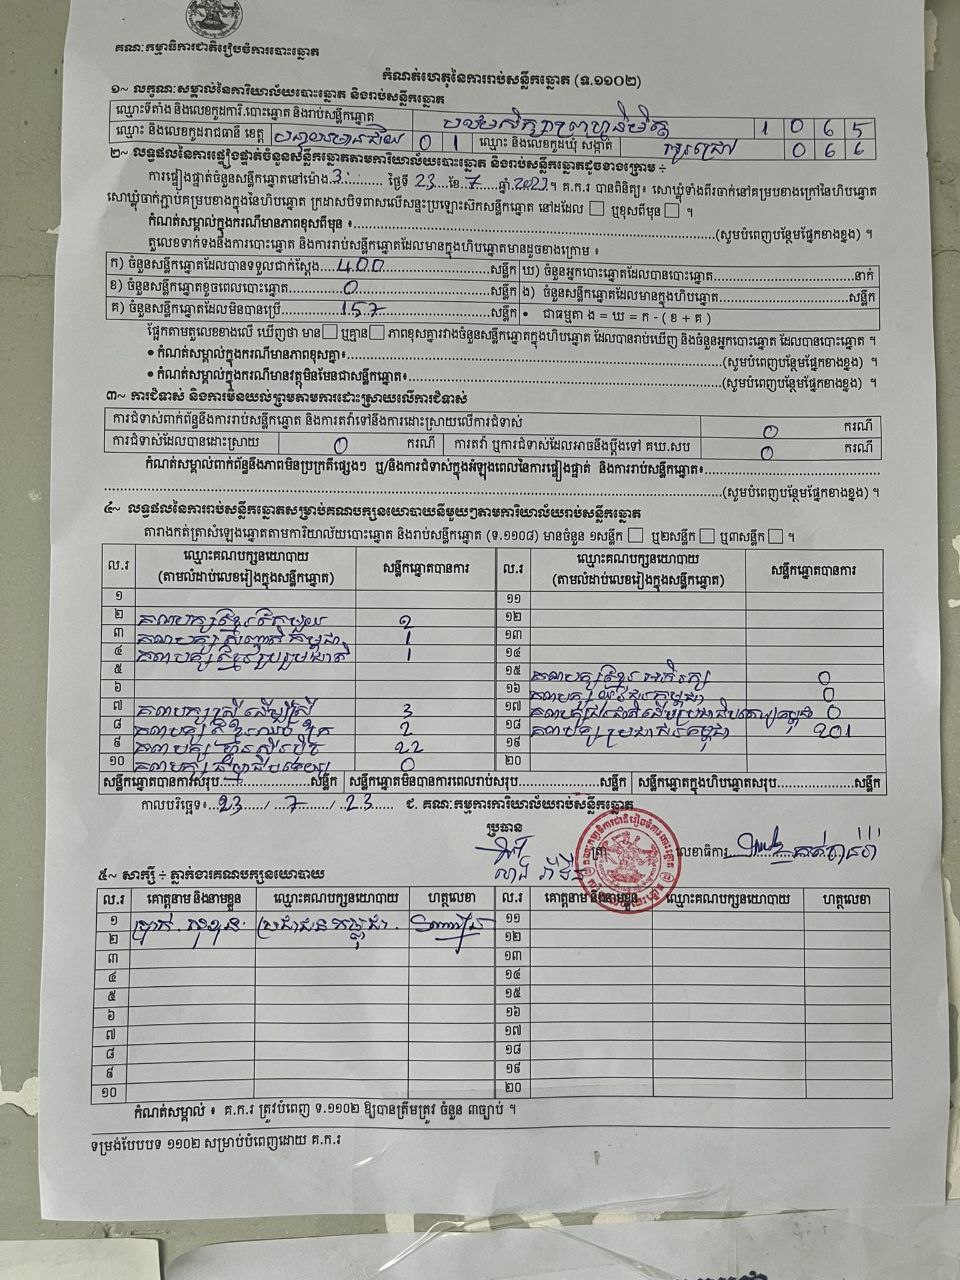 គណៈកម្មាធិការជាតិរៀបចំការបោះឆ្នោត
កំណត់ហេតុនៃការរាប់សន្លឹកឆ្នោត (ទ.១១០២)
១~ លក្ខណៈសម្គាល់នៃការិយាល័យបោះឆ្នោត និងរាប់សន្លឹកឆ្នោត
ឈ្មោះទីតាំង និងលេខកូដការិ.បោះឆ្នោត និងរាប់សន្លឹកឆ្នោត 1 0 6 5
ឈ្មោះ និងលេខកូដរាជធានី ខេត្ត បន្ទាយមានជ័យ 0 1 ឈ្មោះ និងលេខកូដឃុំ សង្កាត់ 0 6 6
២~ លទ្ធផលនៃការផ្ទៀងផ្ទាត់ចំនួនសន្លឹកឆ្នោតតាមការិយាល័យបោះឆ្នោត និងរាប់សន្លឹកឆ្នោតដូចខាងក្រោម ÷
ការផ្ទៀងផ្ទាត់ចំនួនសន្លឹកឆ្នោតនៅម៉ោង 3: ថ្ងៃទី 23 ខែ 7 ឆ្នាំ 2023 ។ គ.ក.រ បានពិនិត្យ៖ សោឃ្លុំទាំងពីរចាក់នៅគម្របខាងក្រៅនៃហិបឆ្នោត
សោឃ្លុំចាក់ភ្ជាប់គម្របខាងក្នុងនៃហិបឆ្នោត ក្រដាសបិទពាសលើសន្ទះប្រឡោះស៊កសន្លឹកឆ្នោត នៅដដែល □ ឬខុសពីមុន □ ។
កំណត់សម្គាល់ក្នុងករណីមានភាពខុសពីមុន ៖ (សូមបំពេញបន្ថែមផ្នែកខាងខ្នង) ។
តួលេខទាក់ទងនឹងការបោះឆ្នោត និងការរាប់សន្លឹកឆ្នោតដែលមានក្នុងហិបឆ្នោតមានដូចខាងក្រោម ៖
ក) ចំនួនសន្លឹកឆ្នោតដែលបានទទួលជាក់ស្តែង 400 សន្លឹក ឃ) ចំនួនអ្នកបោះឆ្នោតដែលបានបោះឆ្នោត នាក់
ខ) ចំនួនសន្លឹកឆ្នោតខូចពេលបោះឆ្នោត 0 សន្លឹក ង) ចំនួនសន្លឹកឆ្នោតដែលមានក្នុងហិបឆ្នោត សន្លឹក
គ) ចំនួនសន្លឹកឆ្នោតដែលមិនបានប្រើ 157 សន្លឹក • ជាធម្មតា ង = ឃ = ក - ( ខ + គ )
ផ្អែកតាមតួលេខខាងលើ ឃើញថា មាន □ ឬគ្មាន □ ភាពខុសគ្នារវាងចំនួនសន្លឹកឆ្នោតក្នុងហិបឆ្នោត ដែលបានរាប់ឃើញ និងចំនួនអ្នកបោះឆ្នោត ដែលបានបោះឆ្នោត ។
• កំណត់សម្គាល់ក្នុងករណីមានភាពខុសគ្នា៖ (សូមបំពេញបន្ថែមផ្នែកខាងខ្នង) ។
• កំណត់សម្គាល់ក្នុងករណីមានវត្ថុមិនមែនជាសន្លឹកឆ្នោត៖ (សូមបំពេញបន្ថែមផ្នែកខាងខ្នង) ។
៣~ ការជំទាស់ និងការមិនយល់ព្រមតាមការដោះស្រាយលើការជំទាស់
ការជំទាស់ពាក់ព័ន្ធនឹងការរាប់សន្លឹកឆ្នោត និងការតវ៉ាទៅនឹងការដោះស្រាយលើការជំទាស់ 0 ករណី
ការជំទាស់ដែលបានដោះស្រាយ 0 ករណី ការតវ៉ា ឬការជំទាស់ដែលអាចនឹងប្តឹងទៅ គឃ.សប 0 ករណី
កំណត់សម្គាល់ពាក់ព័ន្ធនឹងភាពមិនប្រក្រតីផ្សេងៗ ឬ/និងការជំទាស់ក្នុងអំឡុងពេលនៃការផ្ទៀងផ្ទាត់ និងការរាប់សន្លឹកឆ្នោត៖
(សូមបំពេញបន្ថែមផ្នែកខាងខ្នង) ។
៤~ លទ្ធផលនៃការរាប់សន្លឹកឆ្នោតសម្រាប់គណបក្សនយោបាយនីមួយៗតាមការិយាល័យរាប់សន្លឹកឆ្នោត
តារាងកត់ត្រាសំឡេងឆ្នោតតាមការិយាល័យបោះឆ្នោត និងរាប់សន្លឹកឆ្នោត (ទ.១១០៨) មានចំនួន ១សន្លឹក □ ឬ២សន្លឹក □ ឬ៣សន្លឹក □ ។
ល.រ ឈ្មោះគណបក្សនយោបាយ (តាមលំដាប់លេខរៀងក្នុងសន្លឹកឆ្នោត) សន្លឹកឆ្នោតបានការ ល.រ ឈ្មោះគណបក្សនយោបាយ (តាមលំដាប់លេខរៀងក្នុងសន្លឹកឆ្នោត) សន្លឹកឆ្នោតបានការ
១ ១១
២ គណបក្សខ្មែរតែមួយ ១ ១២
៣ គណបក្សសញ្ជាតិកម្ពុជា 1 ១៣
៤ គណបក្សខ្មែររួបរួមជាតិ 1 ១៤
៥ ១៥ គណបក្សខ្មែរអភិរក្ស 0
៦ ១៦ គណបក្ស 0
៧ គណបក្សស្ត្រីដើម្បីស្ត្រី 3 ១៧ គណបក្ស 0
៨ គណបក្ស 2 ១៨ គណបក្សប្រជាជនកម្ពុជា 201
៩ គណបក្សហ៊្វុនស៊ិនប៉ិច 22 ១៩
១០ គណបក្សធម្មាធិបតេយ្យ 0 ២០
សន្លឹកឆ្នោតបានការសរុប សន្លឹក សន្លឹកឆ្នោតមិនបានការពេលរាប់សរុប សន្លឹក សន្លឹកឆ្នោតក្នុងហិបឆ្នោតសរុប សន្លឹក
កាលបរិច្ឆេទ៖ 23 / 7 / 23 ជ. គណៈកម្មការការិយាល័យរាប់សន្លឹកឆ្នោត
ប្រធាន
ត្រា លេខាធិការ
៥~ សាក្សី ÷ ភ្នាក់ងារគណបក្សនយោបាយ
ល.រ គោត្តនាម និងនាមខ្លួន ឈ្មោះគណបក្សនយោបាយ ហត្ថលេខា ល.រ គោត្តនាម និងនាមខ្លួន ឈ្មោះគណបក្សនយោបាយ ហត្ថលេខា
១ ប្រាក់ ប្រជាជនកម្ពុជា ១១
២ ១២
៣ ១៣
៤ ១៤
៥ ១៥
៦ ១៦
៧ ១៧
៨ ១៨
៩ ១៩
១០ ២០
កំណត់សម្គាល់ ៖ គ.ក.រ ត្រូវបំពេញ ទ.១១០២ ឱ្យបានត្រឹមត្រូវ ចំនួន ៣ច្បាប់ ។
ទម្រង់បែបបទ ១១០២ សម្រាប់បំពេញដោយ គ.ក.រ